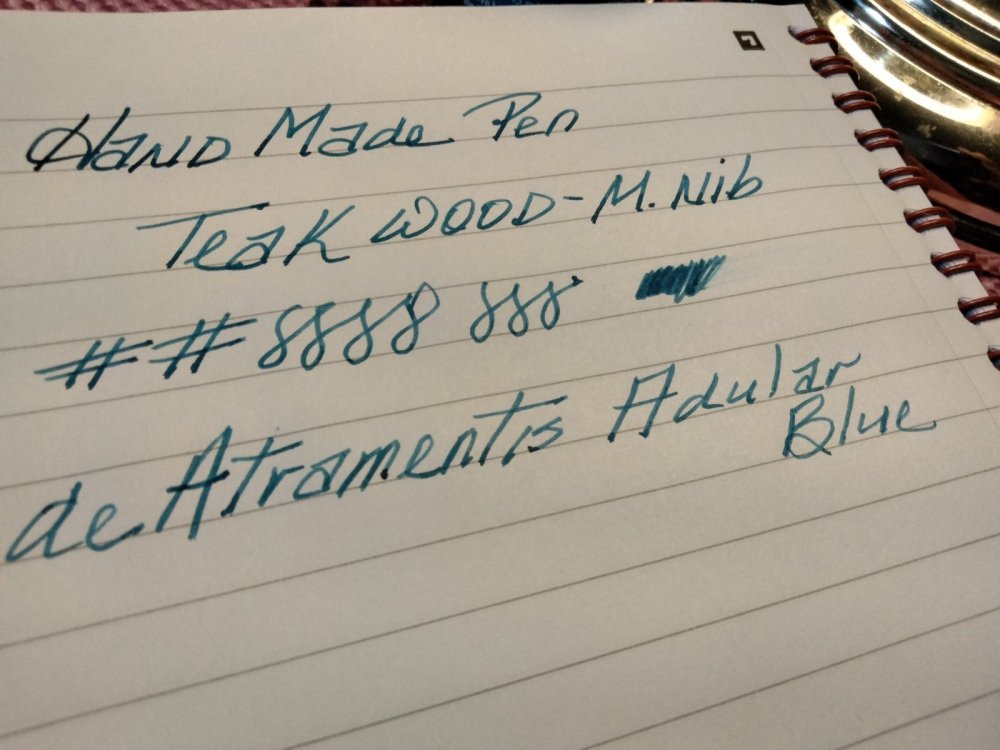 Hand Made Pen
Teak Wood-M. Nib
## 8888 888
de Atramentis Adular
Blue